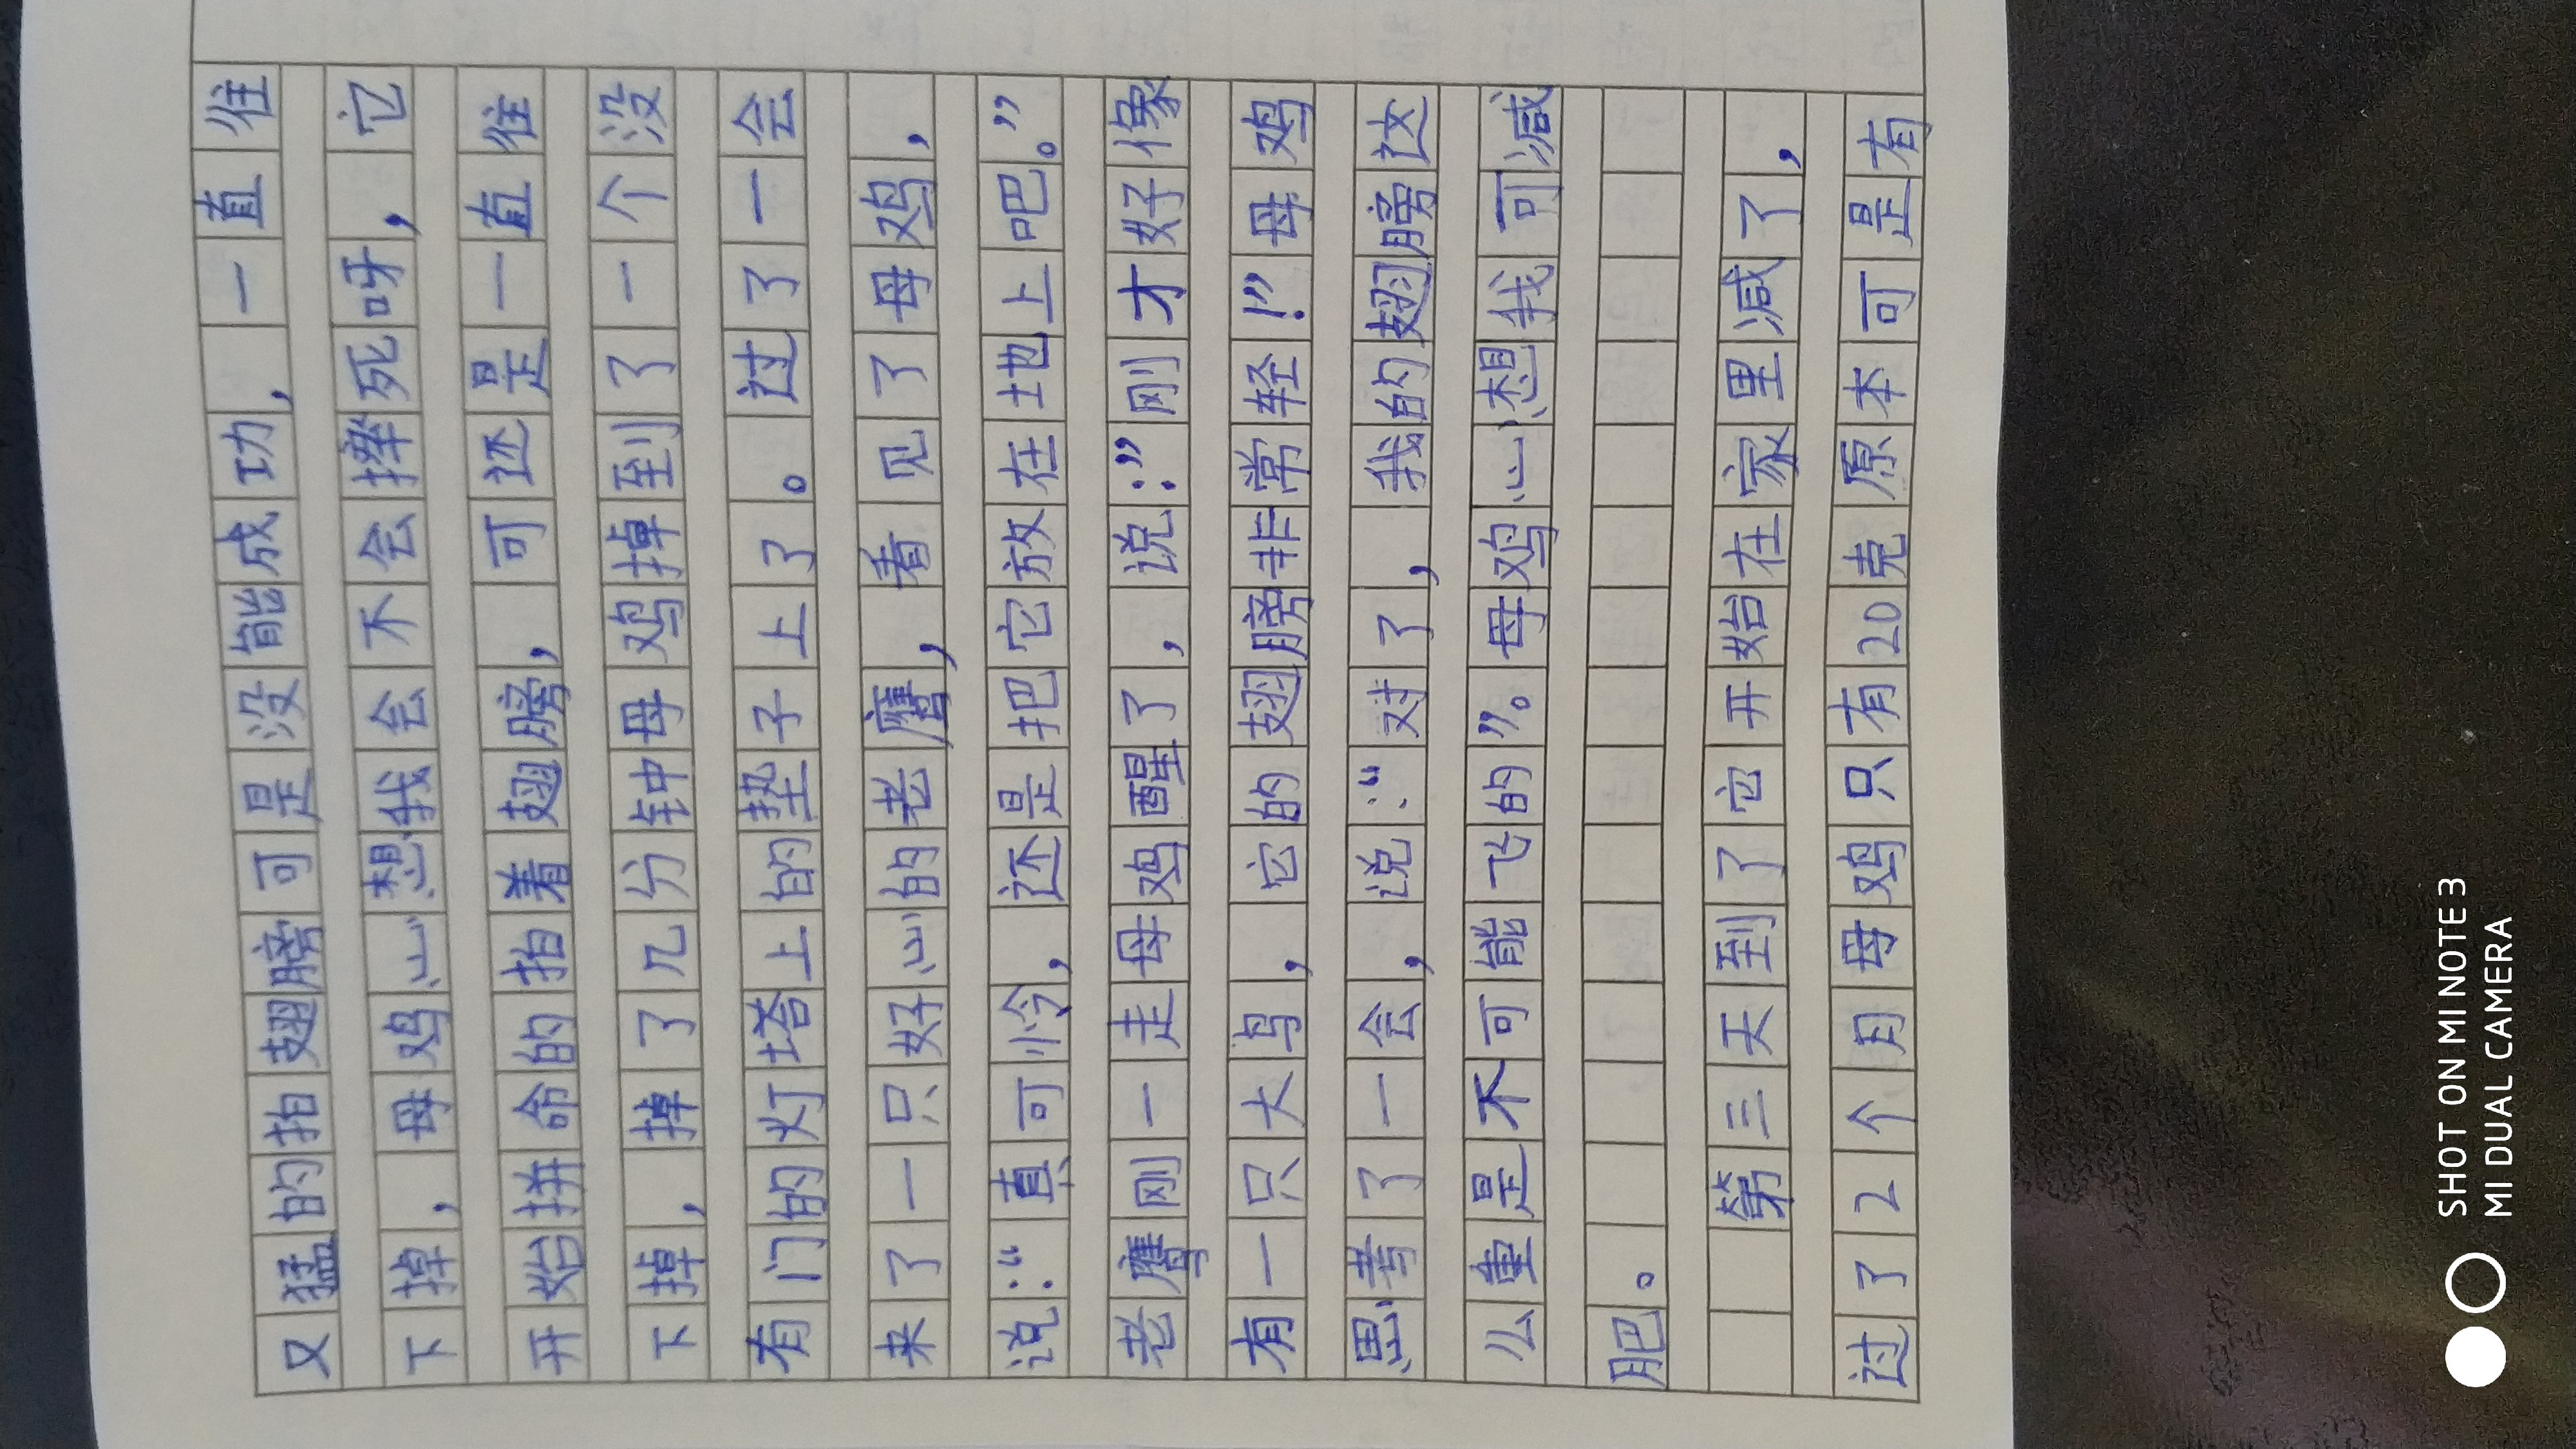 又猛的拍翅膀可是没能成功，一直往
下掉，母鸡心想我会不会摔死呀，它
开始拼命的拍着翅膀，可还是一直往
下掉，掉了几分钟母鸡掉到了一个没
有门的灯塔上的垫子上了。过了一会
来了一只好心的老鹰，看见了母鸡，
说：“真可怜，还是把它放在地上吧。”
老鹰刚一走母鸡醒了，说：”刚才好像
有一只大鸟，它的翅膀非常轻！”母鸡
思考了一会，说：“对了，我的翅膀这
么重是不可能飞的”。母鸡心想我可减
肥。
第三天到了它开始在家里减了，
过了2个月母鸡只有20克原本可是有
SHOT ON MI NOTE 3
MI DUAL CAMERA